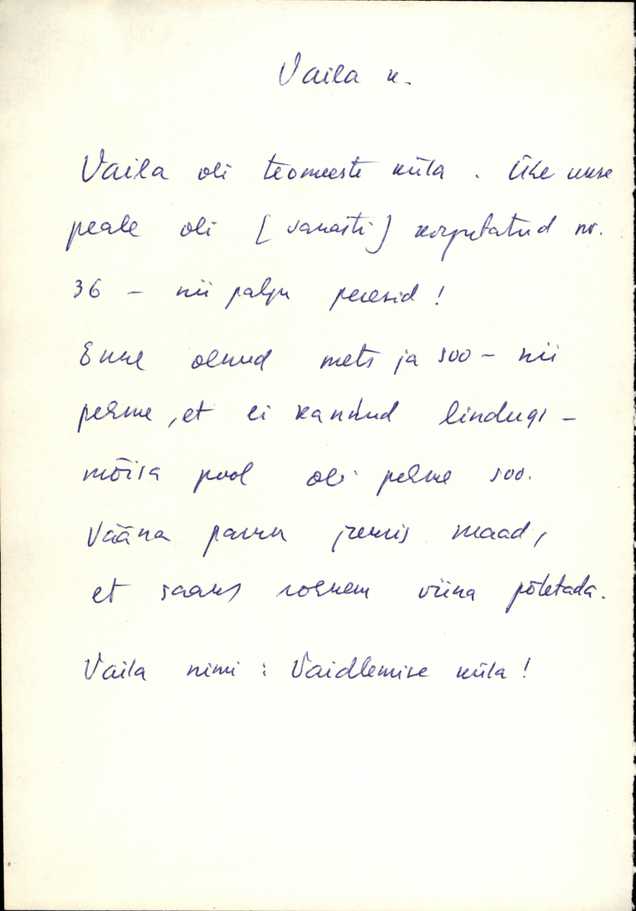 Vaila k.
Vaila oli teomeeste küla. Ühe ukse
peale oli [vanasti] kirjutatud nr.
36 – nii palju peresid!
Enne olnud mets ja soo – nii
pehme, et ei kannud lindugi –
mõisa pool oli pehme soo.
Vääna parun maad,
et saaks rohkem viina põletada.
Vaila nimi: Vaidlemise küla!